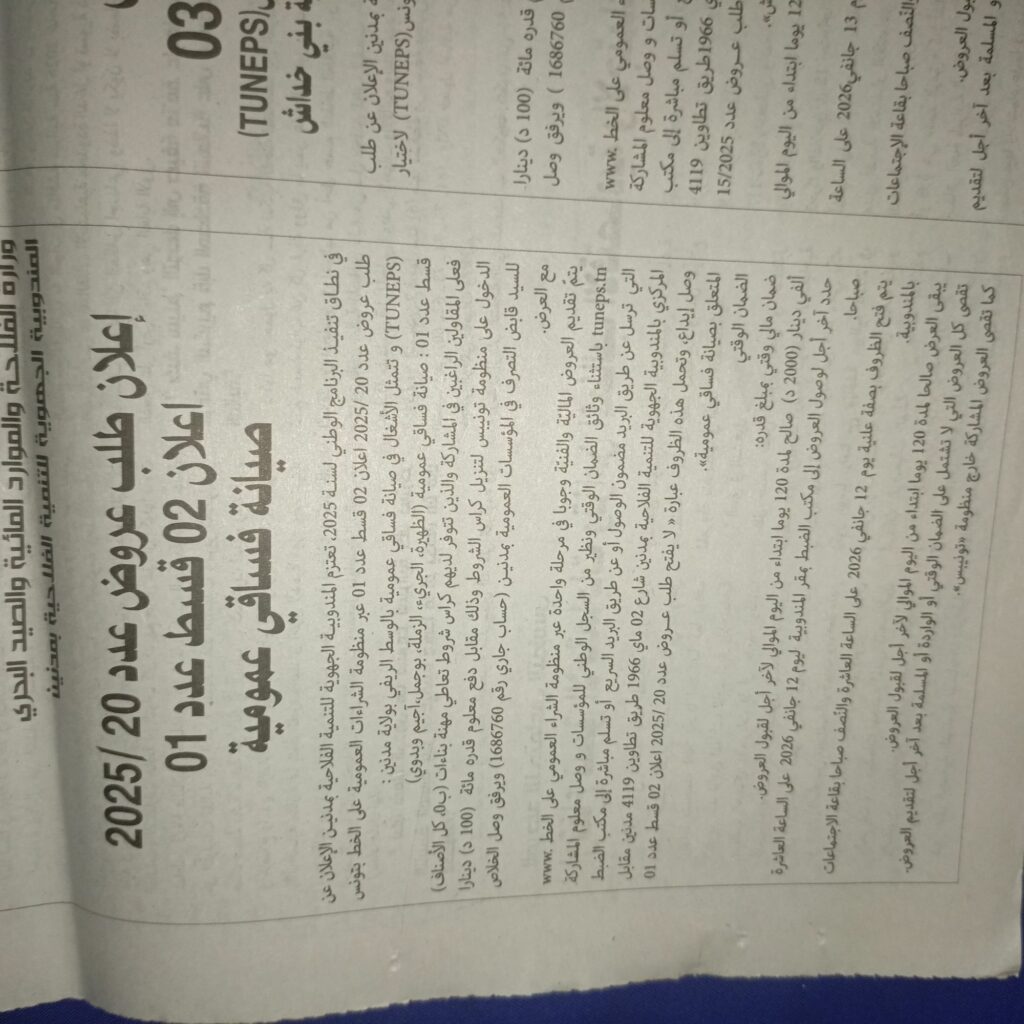 وزارة الفلاحة والموارد المائية والصيد البحري
المندوبية الجهوية للتنمية الفلاحية بمدنين
إعلان طلب عروض عدد 20 /2025
اعلان 02 قسط عدد 01
صيانة فساقي عمومية
في نطاق تنفيذ البرنامج الوطني لسنة 2025، تعتزم المندوبية الجهوية للتنمية الفلاحية بمدنين الإعلان عن
طلب عروض عدد 20 /2025 اعلان 02 قسط عدد 01 عبر منظومة الشراءات العمومية على الخط بتونس
(TUNEPS) و تتمثل الأشغال في صيانة فساقي عمومية بالوسط الريفي بولاية مدنين :
قسط عدد 01 : صيانة فساقي عمومية (الظهيرة، الجريء، الزملة، بوجمل، أجيم وبدوي)
فعلى المقاولين الراغبين في المشاركة والذين تتوفر لديهم كراس شروط تعاطي مهنة بناءات (ب0، كل الأصناف)
الدخول على منظومة تونيبس لتنزيل كراس الشروط وذلك مقابل دفع معلوم قدره مائة (100 د) دينارا
للسيد قابض التصرف في المؤسسات العمومية بمدنين (حساب جاري رقم 1686760) ويرفق وصل الخلاص
مع العرض.
يتم تقديم العروض المالية والفنية وجوبا في مرحلة واحدة عبر منظومة الشراء العمومي على الخط .www
tuneps.tn باستثناء وثائق الضمان الوقتي ونظير من السجل الوطني للمؤسسات و وصل معلوم المشاركة
التي ترسل عن طريق البريد مضمون الوصول أو عن طريق البريد السريع أو تسلم مباشرة إلى مكتب الضبط
المركزي بالمندوبية الجهوية للتنمية الفلاحية بمدنين شارع 02 ماي 1966 طريق تطاوين 4119 مدنين مقابل
وصل إيداع، وتحمل هذه الظروف عبارة « لا يفتح طلب عروض عدد 20 /2025 اعلان 02 قسط عدد 01
المتعلق بصيانة فساقي عمومية».
الضمان الوقتي
ضمان مالي وقتي بمبلغ قدره:
ألفي دينار (2000 د) صالح لمدة 120 يوما ابتداء من اليوم الموالي لآخر أجل لقبول العروض.
حدد آخر أجل لوصول العروض إلى مكتب الضبط بمقر المندوبية ليوم 12 جانفي 2026 على الساعة العاشرة
صباحا.
يتم فتح الظروف بصفة علنية يوم 12 جانفي 2026 على الساعة العاشرة والنصف صباحا بقاعة الاجتماعات
بالمندوبية.
يبقى العرض صالحا لمدة 120 يوما ابتداء من اليوم الموالي لآخر أجل لقبول العروض.
تقصى كل العروض التي لا تشتمل على الضمان الوقتي أو الواردة أو المسلمة بعد آخر أجل لتقديم العروض.
كما تقصى العروض المشاركة خارج منظومة «تونيبس».
03
(TUNEPS)
بني خداش
بمدنين الإعلان عن طلب
(TUNEPS) لاختيار
قدره مائة (100 د) دينارا
1686760 ) ويرفق وصل
العمومي على الخط .www
و وصل معلوم المشاركة
أو تسلم مباشرة إلى مكتب
1966 طريق تطاوين 4119
طلب عروض عدد 15/2025
12 يوما ابتداء من اليوم الموالي
13 جانفي 2026 على الساعة
والنصف صباحا بقاعة الاجتماعات
العروض.
المسلمة بعد آخر أجل لتقديم